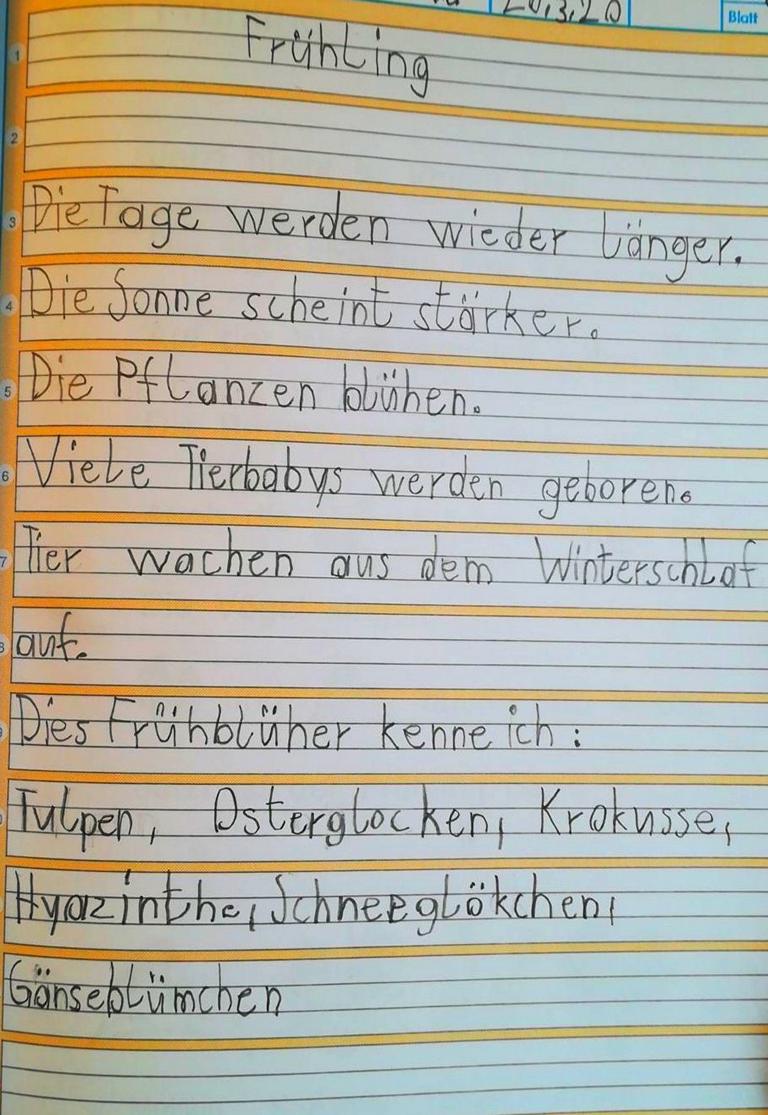 20.3.20
Blatt
Frühling
1
2
3 Die Tage werden wieder länger.
4 Die Sonne scheint stärker.
5 Die Pflanzen blühen.
6 Viele Tierbabys werden geboren.
7 Tier wachen aus dem Winterschlaf
8 auf.
Dies Frühblüher kenne ich:
Tulpen, Osterglocken, Krokusse,
Hyazinthe, Schneeglökchen,
Gänseblümchen